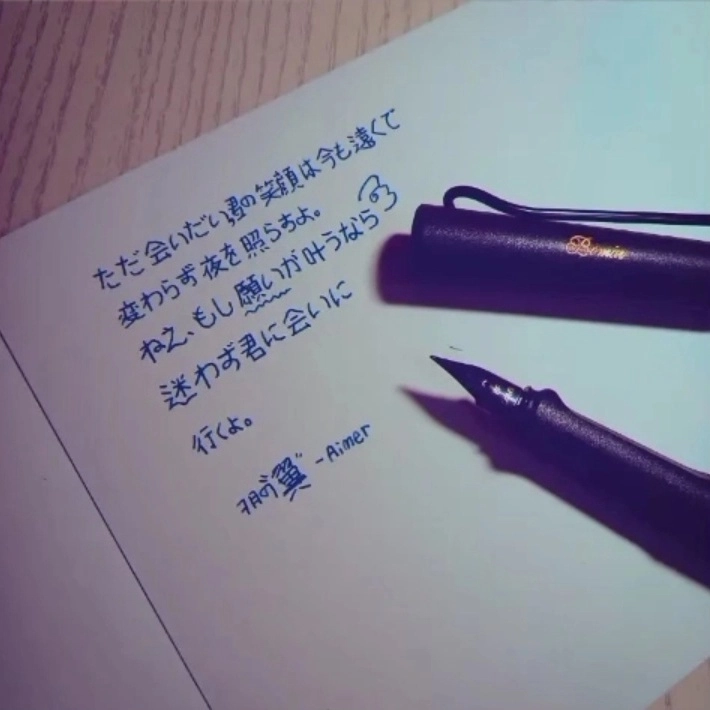 ただ会いだい,君の笑顔は今も遠くで
変わらず夜を照らすよ。
ねえ、もし願いが叶うなら
迷わず君に会いに
行くよ。
羽の翼 -Aimer